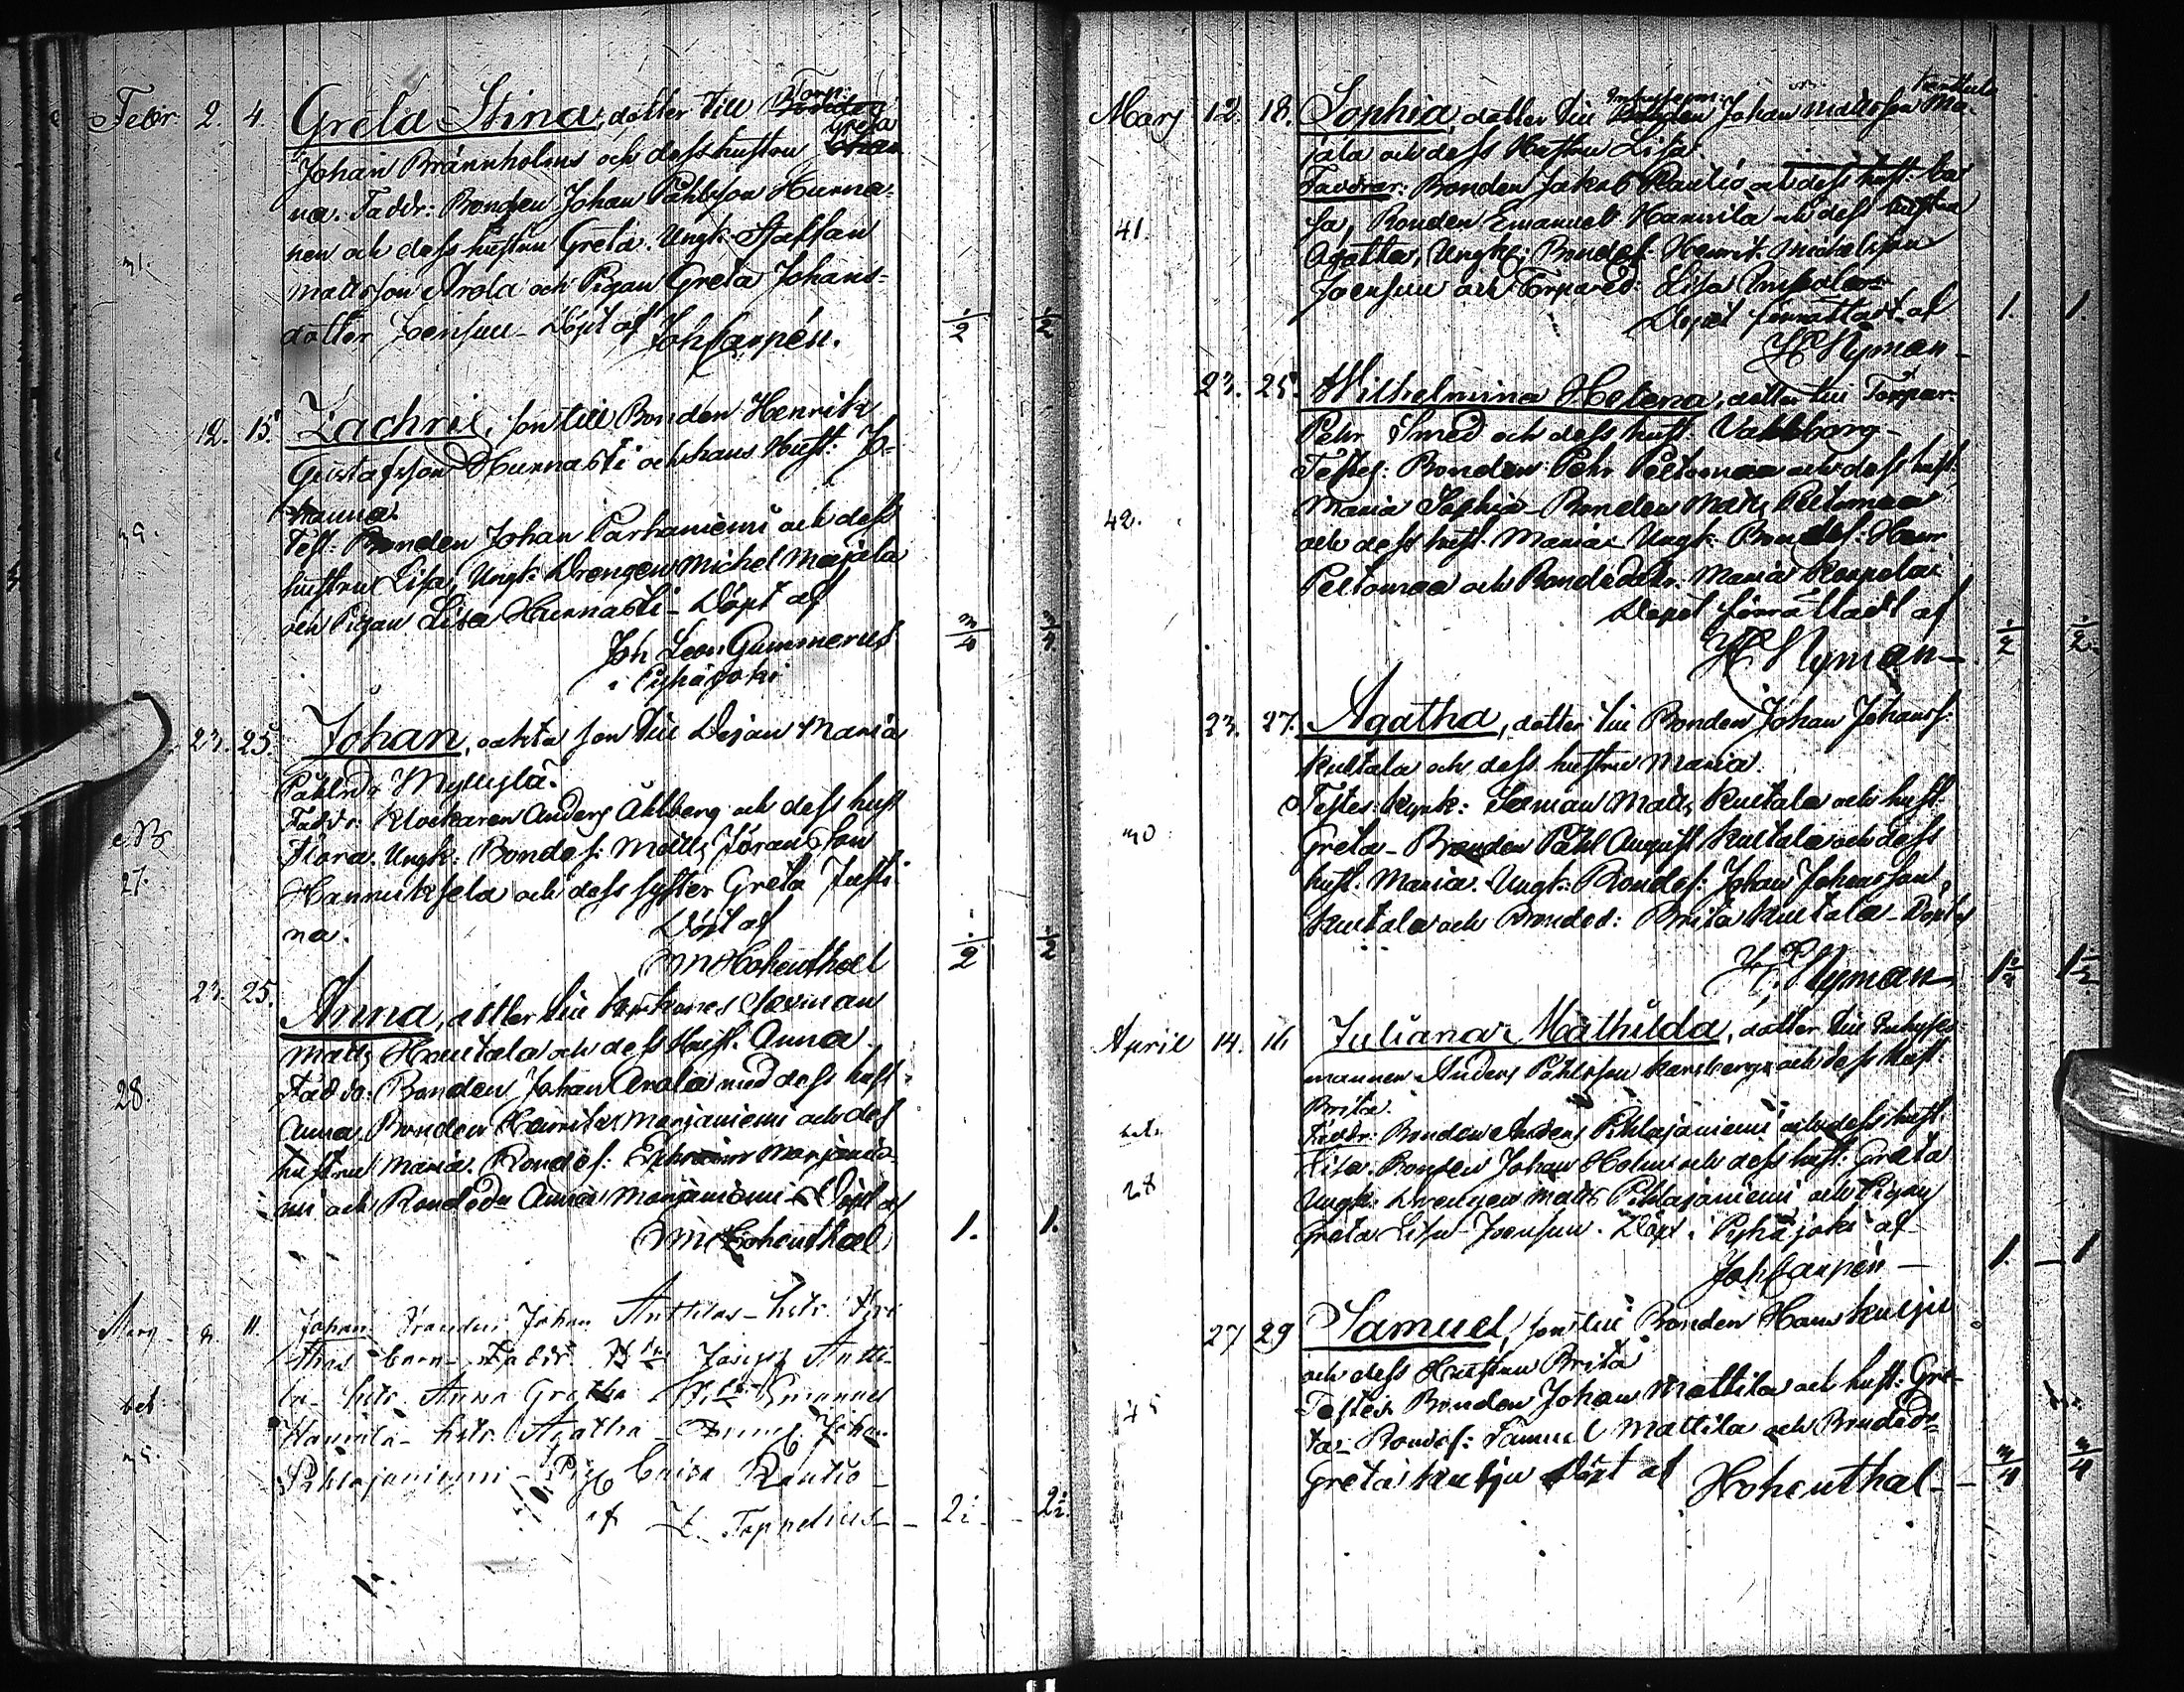 Febr 2. 4. Greta Stina, dotter till Torp:
Johan Brännholms och dess hustru Greta
na. Faddr: Bonden Johan Påhlsson Hurna-
nen och dess hustru Greta. Ungk: Staffan
31.
Mattsson Arola och Pigan Greta Johans-
dotter Joensuu - Döpt af Joh Carpén. 1/2 1/2
12. 15. Zachris, son till Bonden Henrik
Gustafsson Hurnasti och hans Hust: Jo-
hanna.
39.
Test: Bonden Johan Parhaniemi och dess
hustru Lisa, Ungk: Drengen Michel Marjala
och Pigan Lisa Hurnasti - Döpt af
Joh Leon. Gummerus 3/4 3/4
i Pyhäjoki
23. 25. Johan, oäkta son till Dejan Maria
Påhlsd. Myllylä.
Faddr: Klockaren Anders Åhlberg och dess hust
Flora. Ungk: Bondes: Matts Jöransson
27.
Hannuksela och dess syster Greta Justi-
na. Döpt af
Hohenthal 1/2 1/2
23. 25. Anna, dotter till Kyrkones Sexman
Matts Hautala och dess Hust. Anna.
28.
Faddr: Bonden Johan Arola med dess hust
Anna. Bonden Henrik Marjaniemi och dess
hustru Maria. Bondes: Marjanie-
mi och Bondedr Anna Marjaniemi - Döpt af
Hohenthal 1. 1.
Mars 11. Johan Bonden Johan Anttilas - hstr.
barn - Faddr. Joseph Antti-
bet.
la - hstr. Anna Gretha - Emanuel
Hannila - hstr. Agatha - Johan
35.
Pihlajaniemi - Pig. Caisa Rautio -
af Z. Toppelius - 2 1/2 - 2 1/2
Mars 12. 18. Sophia, dotter till Johan Mattsson Ma-
jala och dess Hustru Lisa.
Faddrar: Bonden Jakob Rautio och dess hust: Cai
sa, Bonden Emanuel Hannila och dess hustru
41.
Agatha, Ungk: Bondes: Henrik Michelsson
Joensuu och Torpared: Lisa
Dopet förrättadt af 1. 1.
H Nyman -
23. 25. Wilhelmina Helena, dotter till Torpar.
Pehr Smed och dess hust. Vahlborg -
Testes: Bonden Pehr Peltomaa och dess hust.
42.
Maria Sophia - Bonden Matts Peltomaa
och dess hust. Maria. Ungk: Bondes: Henr
Peltomaa och Bondedotr. Maria Korpela
Dopet förrättadt af
H Nyman - 1/2 1/2
23. 27. Agatha, dotter till Bonden Johan Johanss.
Kultala och dess hustru Maria.
Testes: Kyrk: Sexman Matts Kultala och hust.
30
Greta - Bonden Påhl August Kultala och dess
hust. Maria. Ungk: Bondes: Johan Johansson
Kultala och Bonded: Brita Kultala - Döpt af
H Nyman 1 1/2 1 1/2
April 14. 16 Juliana Mathilda, dotter till Inhyses-
mannen Anders Påhlsson Karlberg och dess Hust
Brita.
bet.
Faddr: Bonden Anders Pihlajaniemi och dess hust.
Lisa. Bonden Johan Holm och dess hust: Greta
28
Ungk: Drengen Matts Pihlajaniemi och Pigan
Greta Lisa Joensuu. Döpt i Pyhäjoki af
Joh Carpén - 1. - 1
27 29 Samuel, son till Bonden Hans Kulju
och dess Hustru Brita
Testes Bonden Johan Mattila och hust: Gre-
45
ta - Bondes: Samuel Mattila och Bondedr
Greta Kulju Döpt af Hohenthal - 3/4 3/4